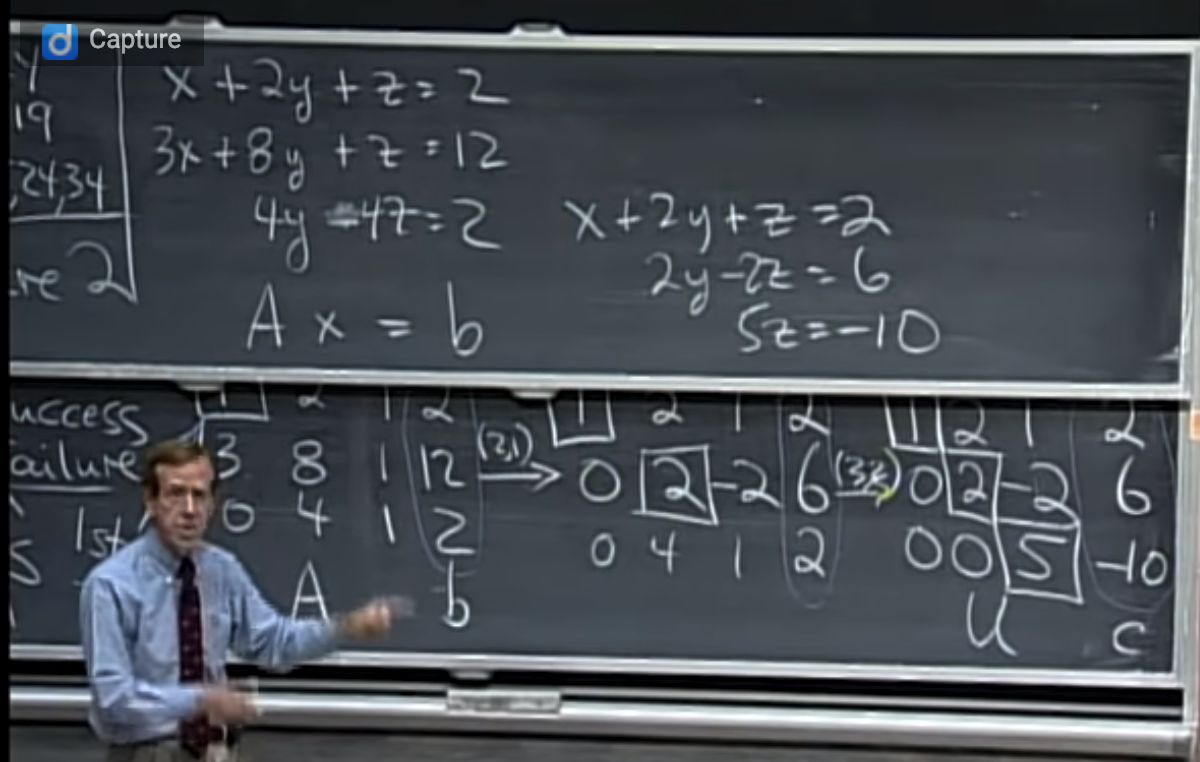 Capture
19
,24,34
x+2y+z=2
3x+8y+z=12
4y-4z=2
Ax=b
x+2y+z=2
2y-2z=6
5z=-10
1st
1 2 1 2
3 8 1 12
0 4 1 2
A b
(2,1)
1 2 1 2
0 2 -2 6
0 4 1 2
1 2 1 2
0 2 -2 6
0 0 5 -10
U c